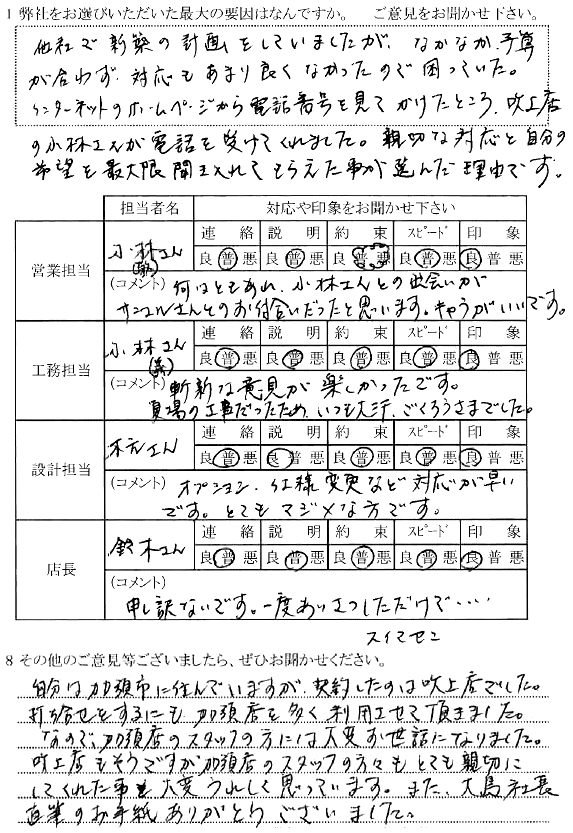 1 弊社をお選びいただいた最大の要因はなんですか。　ご意見をお聞かせ下さい。
他社で新築の計画をしていましたが、なかなか予算
が合わず、対応もあまり良くなかったので困っていた。
インターネットのホームページから電話番号を見てかけたところ、吹上店
の小林さんが電話を受けてくれました。親切な対応と自分の
希望を最大限聞き入れてもらえた事が選んだ理由です。
担当者名 対応や印象をお聞かせ下さい
営業担当 小林さん
連絡 説明 約束 スピード 印象
良普悪 良普悪 良普悪 良普悪 良普悪
(コメント) 何はともあれ、小林さんとの出会いが
サンエルさんとのお付合いだったと思います。キャラがいいです。
工務担当 小林さん
連絡 説明 約束 スピード 印象
良普悪 良普悪 良普悪 良普悪 良普悪
(コメント) 斬新な意見が楽しかったです。
夏場の工事だったため、いつも大汗、ごくろうさまでした。
設計担当 さん
連絡 説明 約束 スピード 印象
良普悪 良普悪 良普悪 良普悪 良普悪
(コメント) オプション、仕様変更など対応が早い
です。とてもマジメな方です。
店長 鈴木さん
連絡 説明 約束 スピード 印象
良普悪 良普悪 良普悪 良普悪 良普悪
(コメント)
申し訳ないです。一度あいさつしただけで・・・・
スイマセン
8 その他のご意見等ございましたら、ぜひお聞かせください。
自分は加須市に住んでいますが、契約したのは吹上店でした。
打合せをするにも加須店を多く利用させて頂きました。
なので、加須店のスタッフの方には大変お世話になりました。
吹上店もそうですが加須店のスタッフの方々もとても親切に
してくれた事を大変うれしく思っています。また、大島社長
直筆のお手紙ありがとうございました。